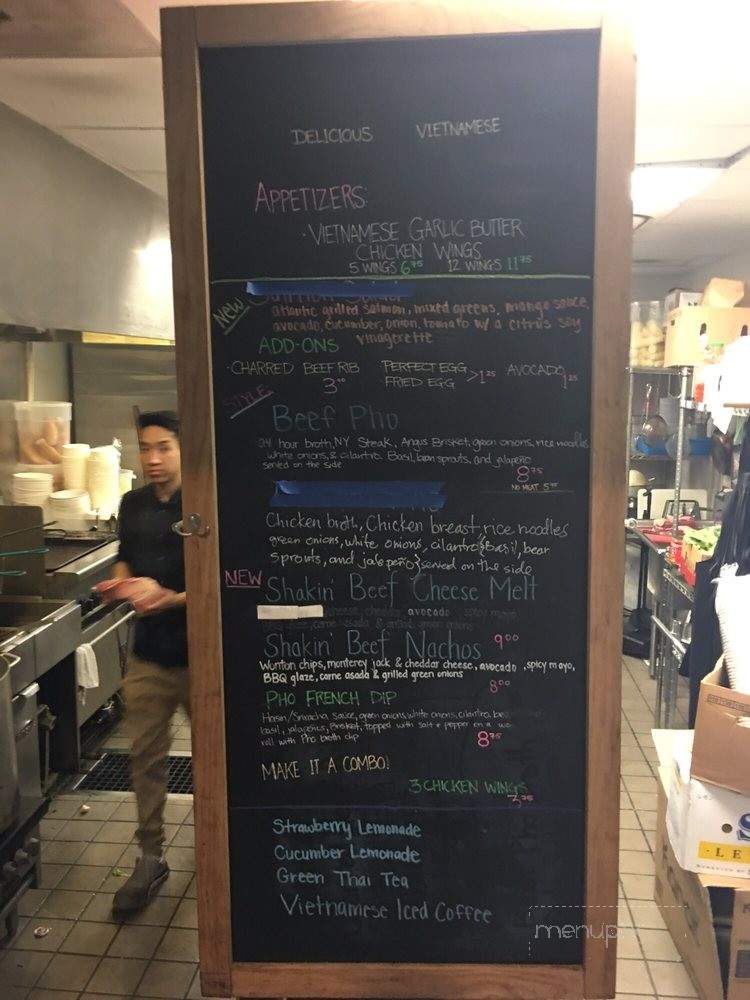 DELICIOUS VIETNAMESE
APPETIZERS:
· VIETNAMESE GARLIC BUTTER
CHICKEN WINGS
5 WINGS 6.75 12 WINGS 11.75
NEW
atlantic grilled salmon, mixed greens, mango sauce,
avocado, cucumber, onion, tomato w/ a citrus soy
vinagerette
ADD-ONS
· CHARRED BEEF RIB 3.00 PERFECT EGG FRIED EGG > 1.25 AVOCADO 1.25
STYLE
Beef Pho
24 hour broth, NY Steak, Angus Brisket, green onions, rice noodles
white onions, & cilantro. Basil, bean sprouts, and jalapeño
served on the side 8.75
NO MEAT
Chicken broth, Chicken breast, rice noodles
green onions, white onions, cilantro & Basil, bean
sprouts, and jalapeño served on the side
NEW Shakin' Beef Cheese Melt
cheese, cheddar avocado spicy mayo
carne asada & grilled green onions
Shakin' Beef Nachos 9.00
Wonton chips, monterey jack & cheddar cheese, avocado, spicy mayo,
BBQ glaze, carne asada & grilled green onions 8.00
PHO FRENCH DIP
Hoisin/Sriracha sauce, green onions, white onions, cilantro,
basil, jalapeños, Brisket, topped with salt & pepper on a
roll with Pho broth dip 8.75
MAKE IT A COMBO!
3 CHICKEN WINGS
3.75
Strawberry Lemonade
Cucumber Lemonade
Green Thai Tea
Vietnamese Iced Coffee
menup
LE